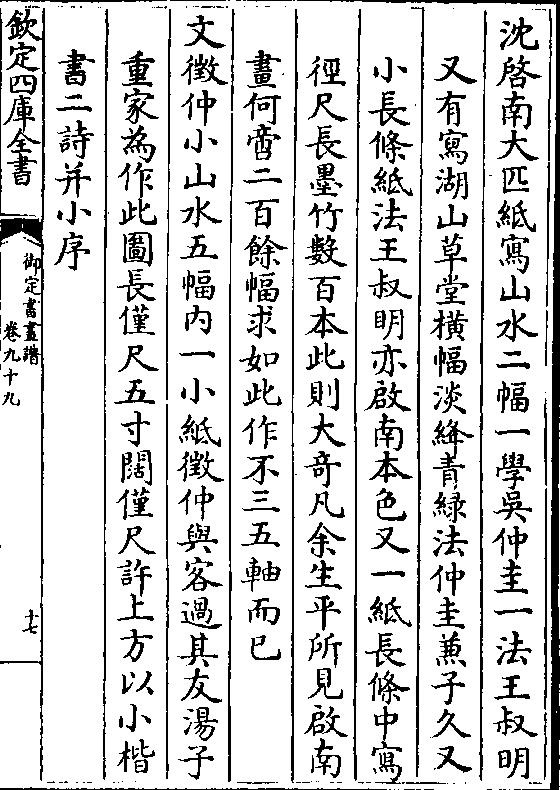 沈啓南大匹紙寫山水二幅一學吳仲圭一法王叔明
又有寫湖山草堂橫幅淡絳青緑法仲圭蒹子久又
小長條紙法王叔明亦啟南本色又一紙長條中寫
徑尺長墨竹數百本此則大奇凡余生平所見啟南
畫何啻二百餘幅求如此作不三五軸而已
文徵仲小山水五幅内一小紙徵仲與客過其友湯子
重家為作此圖長僅尺五寸闊僅尺許上方以小楷
書二詩并小序
欽定四庫全書
御定書畫譜
卷九十九
十七